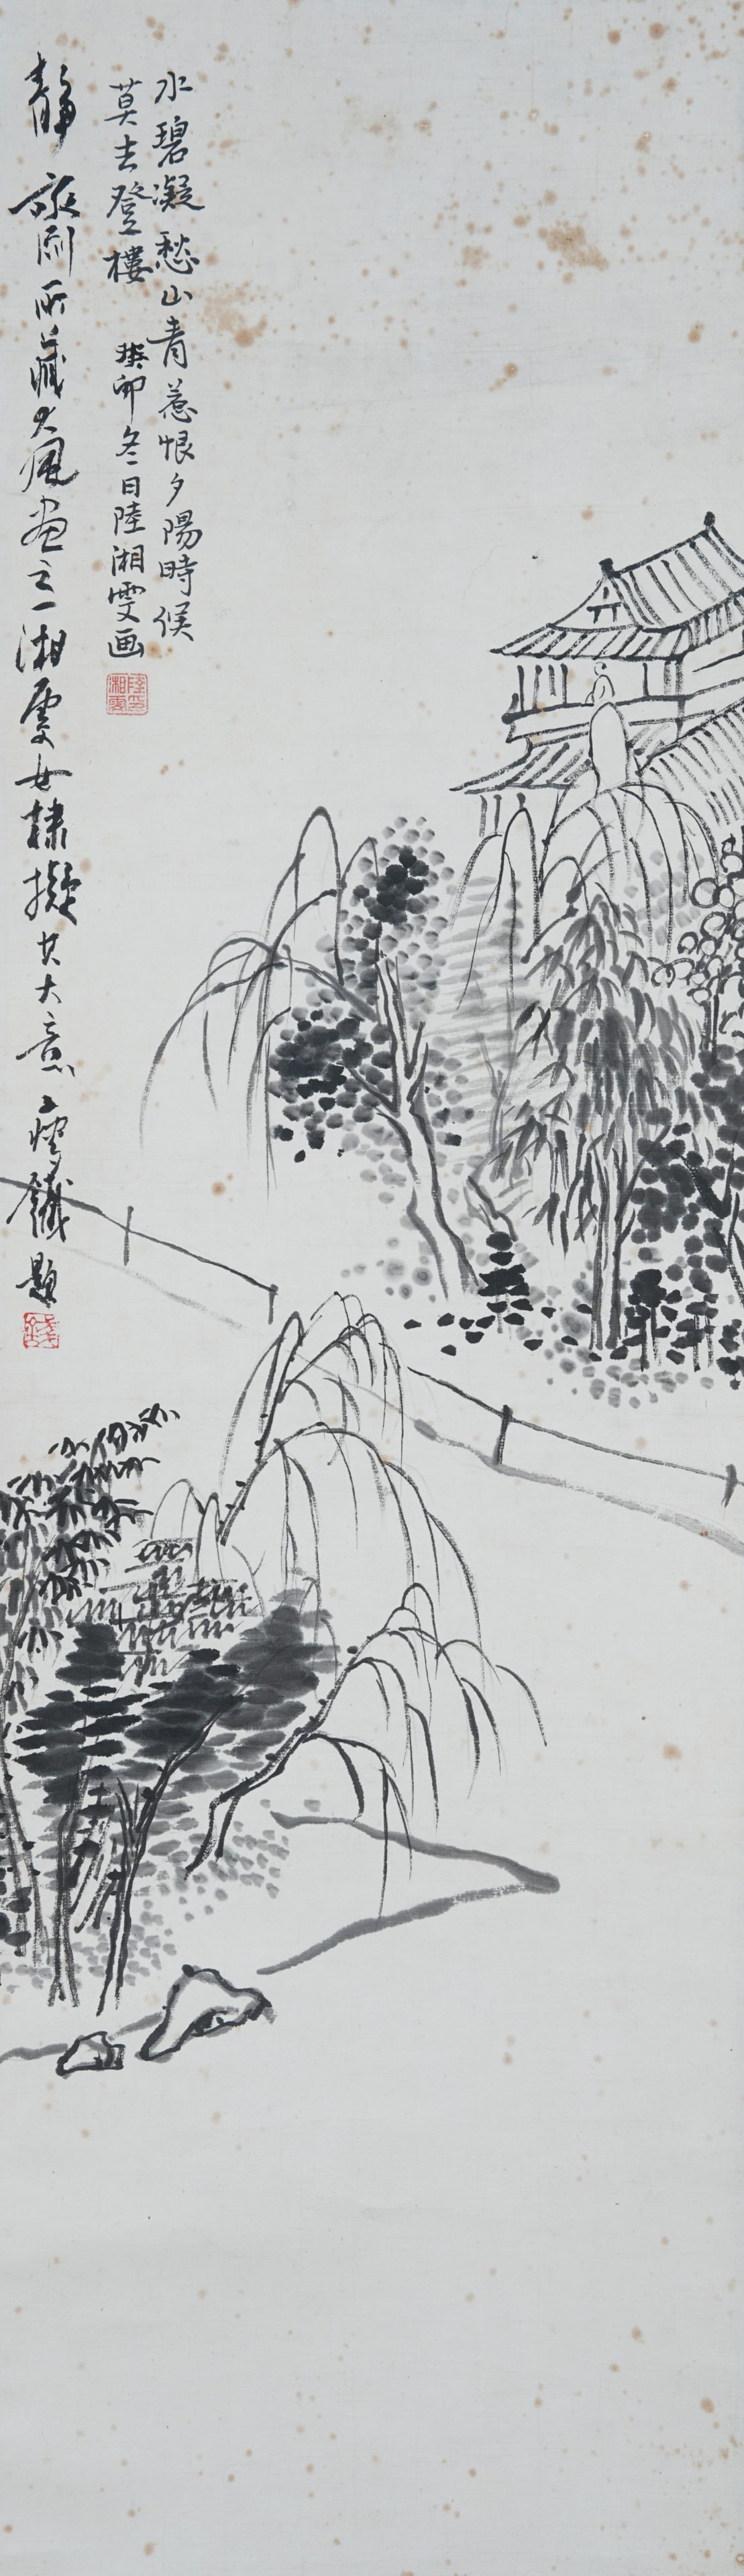 水碧凝愁山青惹恨夕陽時候
莫去登樓 癸卯冬日陸湘雯画
陸湘雯
靜 所藏大風画之一湘雯女棣擬其大意 瘦鐵題